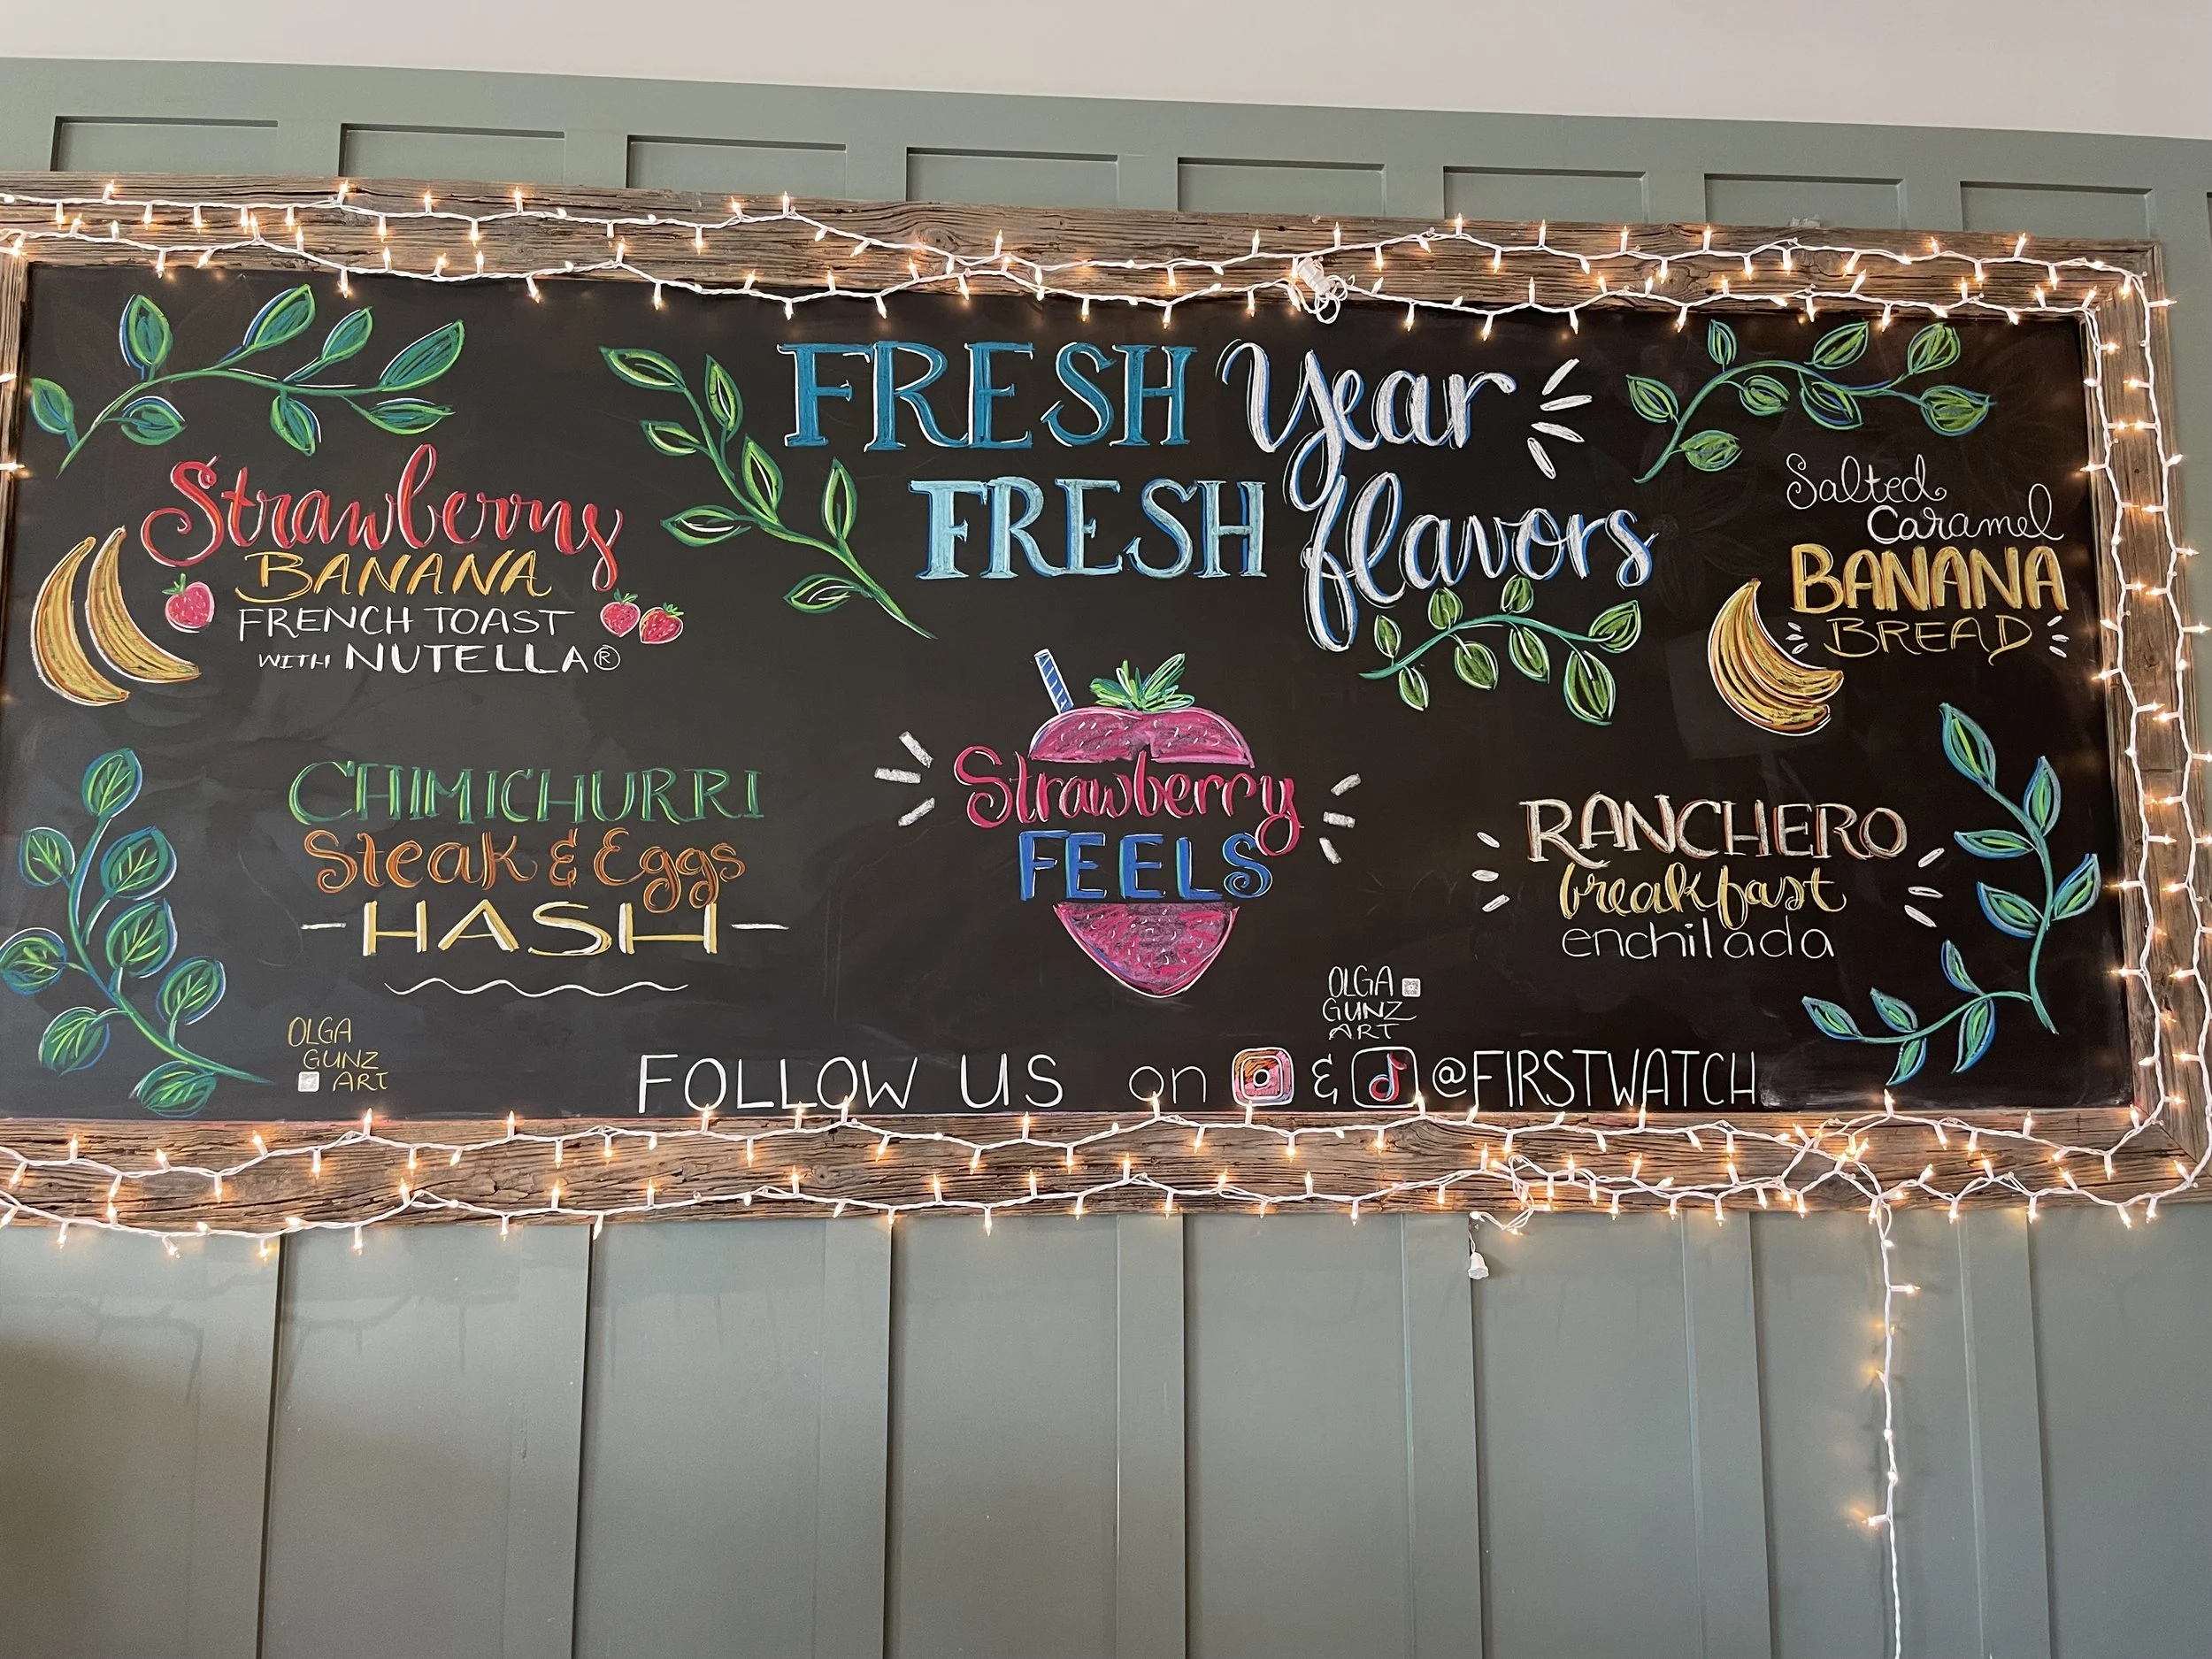 FRESH Year
FRESH flavors
Strawberry
BANANA
FRENCH TOAST
WITH NUTELLA®
Salted
Caramel
BANANA
BREAD
CHIMICHURRI
Steak & Eggs
-HASH-
Strawberry
FEELS
RANCHERO
breakfast
enchilada
OLGA
GUNZ
ART
OLGA
GUNZ
ART
FOLLOW US on & @FIRSTWATCH